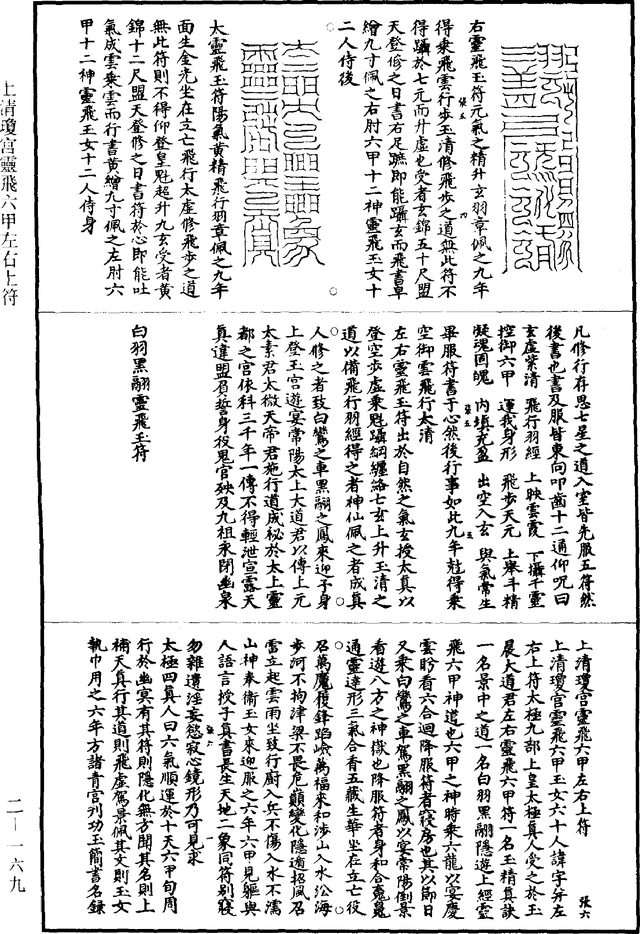 右靈飛玉符元氣之精升玄羽章佩之九年
得乘飛雲行步玉清修飛步之道無此符不
得躡於七元而升虛也受者玄錦五十尺盟
天登修之日書右足蹠即能躡玄而飛書皁
繒九寸佩之右肘六甲十二神靈飛玉女十
二人侍後
太靈飛玉符陽氣黃精飛行羽章佩之九年
面生金光坐在立亡飛行太虛修飛步之道
無此符則不得仰登皇魁超升九玄受者黃
錦十二尺盟天登修之日書符於心即能吐
氣成雲乘雲而行書黃繒九寸佩之左肘六
甲十二神靈飛玉女十二人侍身
凡修行存思七星之道入室皆先服五符然
後書也書及服皆東向叩齒十二通仰呪曰
玄虛紫清 飛行羽經 上映雲霞 下攝千靈
控御六甲 運我身形 飛步天元 上舉斗精
凝魂固魄 內填充盈 出空入玄 與氣常生
畢服符書于心然後行事如此九年剋得乘
空御雲飛行太清
左右靈飛玉符出於自然之氣玄授太真以
登空步虛乘魁躡綱纏絡七玄上升玉清之
道以備飛行羽經得之者神仙佩之者成真
人修之者致白鸞之車黑翮之鳳來迎子身
上登玉宮遊宴常陽太上大道君以傳上元
太素君太微天帝君施行道成秘於太上靈
都之宮依科三千年一傳不得輕泄宣露天
真違盟負誓身役鬼官殃及九祖永閉幽泉
白羽黑翮靈飛玉符
上清瓊宮靈飛六甲左右上符 張六
上清瓊宮靈飛六甲玉女六十人諱字并左
右上符太極九部上皇太極真人受之於玉
晨大道君左右靈飛六甲符一名玉精真訣
一名景中之道一名白羽黑翮隱遊上經靈
飛六甲神道也六甲之神時乘六龍以宴慶
雲盻看六合迴降服符者寢房也其以即日
又乘白鸞之車駕黑翮之鳳以宴常陽倒景
看遊八方之神嶽也降服符者身和合魂魄
通靈達形三氣合香五藏生華坐在立亡役
召萬魔覆鋒蹈嶮萬福來和涉山入水沿海
步河不拘津梁不畏危巔變化隱遁招風召
雷立起雲雨坐致行廚入兵不傷入水不濡
山神奉衛玉女來迎服之六年六甲見軀與
人語言授子真書長生天地二象同符別寢
勿雜遺淫妄慾寂心鏡形乃可見求
太極四真人曰六氣順運於十天六甲旬周
行於幽冥有其符則隱化無方聞其名則上
補天真行其道則飛虛駕景佩其文則玉女
執巾用之六年方諸青宮列功玉簡書名錄
上清瓊宮靈飛六甲左右上符
二—一六九